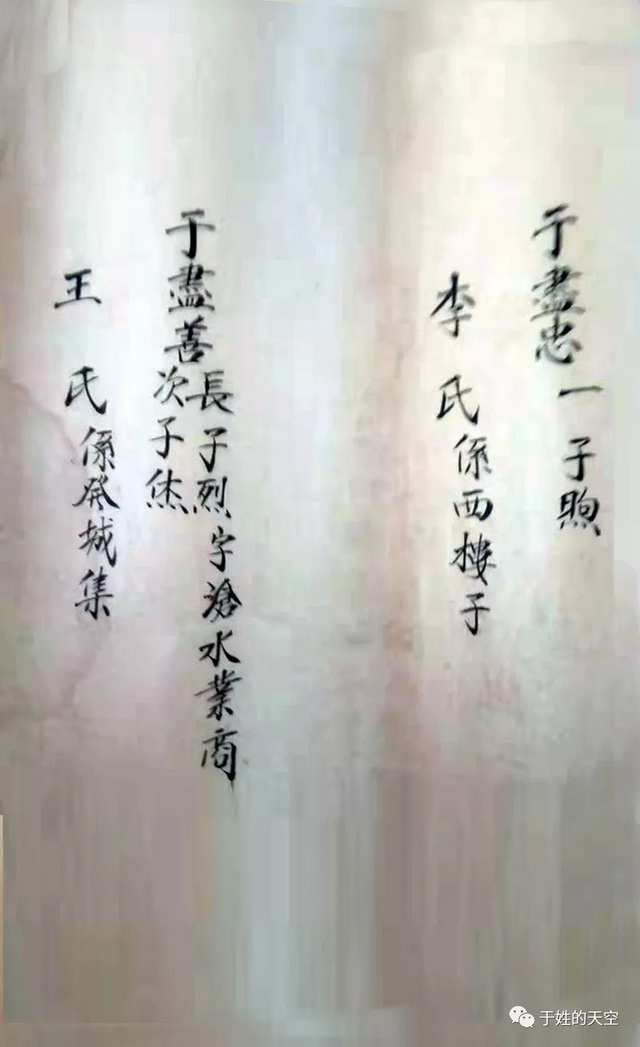 于盡忠 一子煦
李 氏係西樓子
于盡善 長子烈字滄水業商
次子烋
王 氏係發城集
于姓的天空